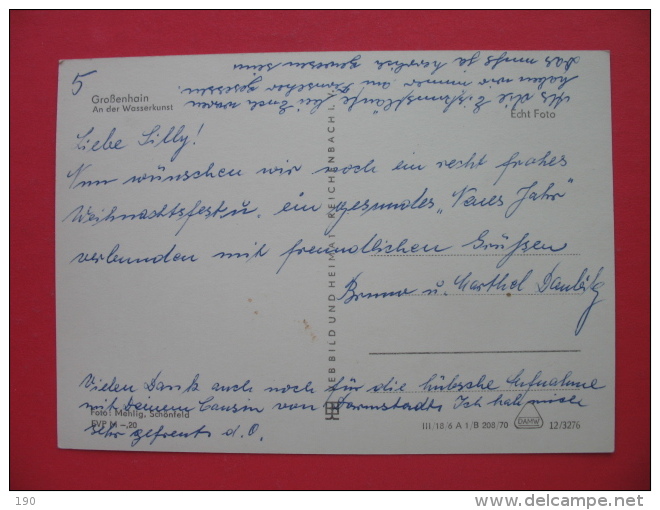 5
Großenhain
An der Wasserkunst
Echt Foto
Als die Eiskunstläufe bei Euch waren
haben wir immer am Fernseher gesessen.
Das muß ja herrlich gewesen sein
Liebe Lilly!
Nun wünschen wir noch ein recht frohes
Weihnachtsfest u. ein gesundes „Neues Jahr"
verbunden mit freundlichen Grüßen
Bruno u. Marthel
VEB BILD UND HEIMAT REICHENBACH I.
Vielen Dank auch noch für die hübsche Aufnahme
mit Deinem Cousin von Darmstadt. Ich hab mich
sehr gefreut d.O.
Foto: Mehlig, Schönfeld
EVP M -,20
III/18/6 A 1/B 208/70
DAMW
12/3276
190
www.delcampe.net